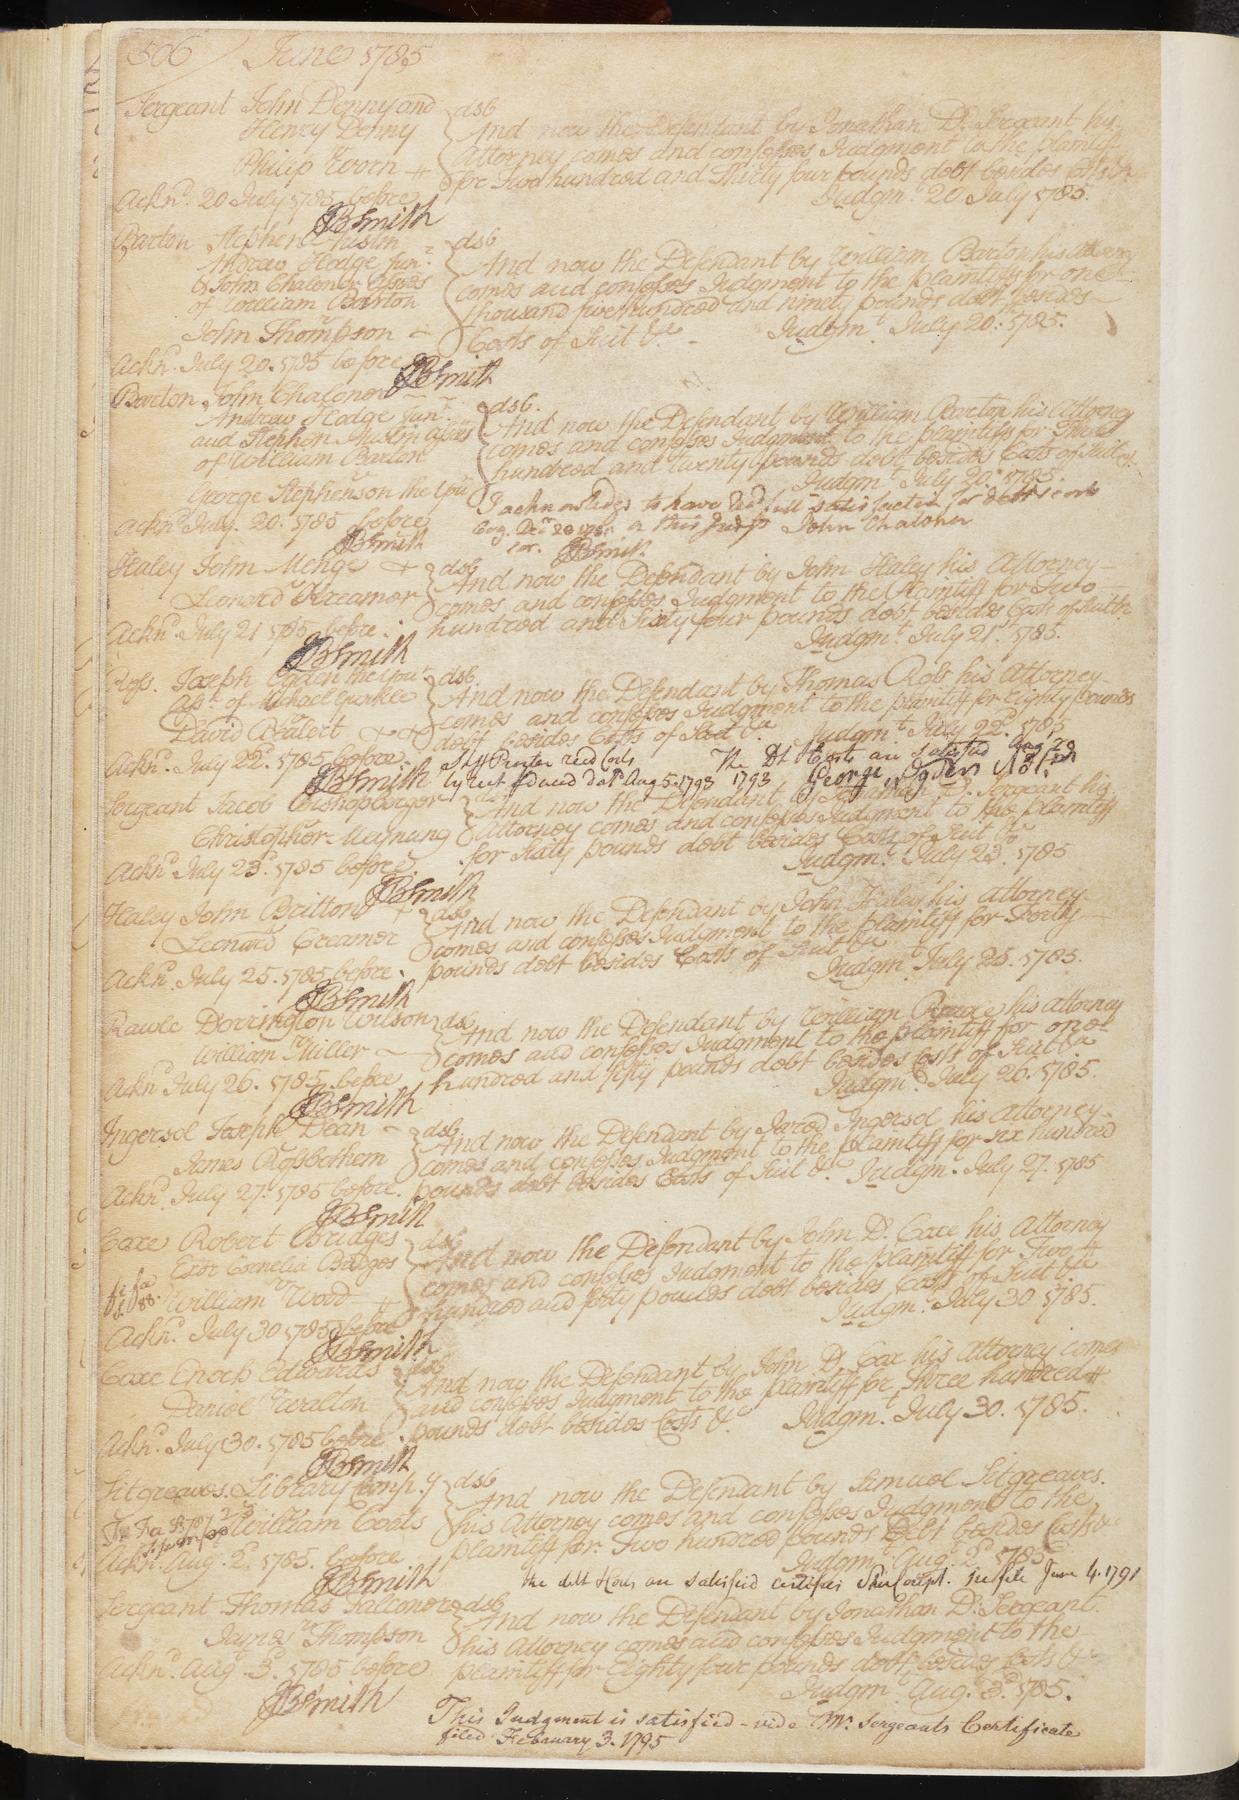 506 / June 1785
Sergeant John Denny and
Henry Denny
v
Philip Woorn
Ackn.d 20 July 1785 before
JBSmith
dsb
And now the Defendant by Jonathan D. Sergeant his
Attorney comes and confesses Judgment to the plaintiff
for Two hundred and Thirty four pounds debt besides Costs
Judgm.t 20 July 1785.
Barton Stephen Austin
Andrew Hodge Jun.r
& John Chaloner Assees
of William Barton
v
John Thompson
Ackn.d July 20. 1785 before
JBSmith
dsb
And now the Defendant by William Barton his Attorney
comes and confesses Judgment to the plaintiffs for one
thousand five hundred and ninety pounds debt besides
Costs of Suit &c. Judgm.t July 20. 1785.
Barton John Chaloner
Andrew Hodge Jun.r
and Stephen Austin Assees
of William Barton
v
George Stephenson the
Ackn.d July. 20. 1785 before
JBSmith
dsb.
And now the Defendant by William Barton his Attorney
comes and confesses Judgment to the plaintiffs for Three
hundred and twenty pounds debt besides Costs of Suit &c.
Judgm.t July 20. 1785.
I acknowledge to have rec'd full satisfaction for debt & costs
on this Judg.t John Chaloner
cor. JBSmith
Haley John Menge
v
Leonard Kreamer
Ackn.d July 21 1785 before
JBSmith
dsb
And now the Defendant by John Haley his Attorney
comes and confesses Judgment to the Plaintiff for Two
hundred and sixty four pounds debt, besides Costs of Suit &c
Judgm.t July 21. 1785.
Ross. Joseph Ogden the
ass.ee of Michael Yunkee
v
David Sealert
Ackn.d July 22.d 1785 before
JBSmith
dsb.
And now the Defendant by Thomas Ross his Attorney
comes and confesses Judgment to the plaintiff for Eighty pounds
debt besides Costs of Suit &c Judgm.t July 22.d 1785
rec'd Costs
dat.d Aug. 5. 1793
The Dt & Costs are satisfied Aug
1793 George Ogden
Sergeant Jacob Bishopberger
v
Christopher Meynung
Ackn.d July 23.d 1785 before
JBSmith
dsb
And now the Defendant by Jonathan D. Sergeant his
Attorney comes and confesses Judgment to the plaintiff
for Sixty pounds debt besides Costs of Suit &c
Judgm.t July 23.d 1785
Haley John Britton
v
Leonard Creamer
Ackn.d July 25. 1785 before
JBSmith
dsb
And now the Defendant by John Haley his Attorney
comes and confesses Judgment to the plaintiff for Forty
pounds debt besides Costs of Suit &c
Judgm.t July 25. 1785.
Rawle Dorrington Wilson
v
William Miller
Ackn.d July 26. 1785 before
JBSmith
dsb
And now the Defendant by William Rawle his attorney
comes and confesses Judgment to the plaintiff for one
hundred and fifty pounds debt besides Costs of Suit &c
Judgm.t July 26. 1785.
Ingersol Joseph Dean
v
James Rosbothem
Ackn.d July 27. 1785 before
JBSmith
dsb
And now the Defendant by Jared Ingersol his Attorney
comes and confesses Judgment to the plaintiff for six hundred
pounds debt besides Costs of Suit &c Judgm. July 27. 1785
Coxe Robert Bridges
Exor Cornelia Bridges
v
William Wood
fi fa
88.
Ackn.d July 30 1785 before
JBSmith
dsb
And now the Defendant by John D. Coxe his Attorney
comes and confesses Judgment to the plaintiff for Two
hundred and forty pounds debt besides Costs of Suit &c
Judgm.t July 30 1785.
Coxe Enoch Edwards
v
Daniel Walton
Ackn.d July 30. 1785 before
JBSmith
dsb
And now the Defendant by John D. Coxe his Attorney comes
and confesses Judgment to the plaintiff for three hundred
pounds debt besides Costs &c Judgm. July 30. 1785.
Sitgreaves. Library Comp.y
v
William Coats
Ackn.d Aug. 2.d 1785. before
JBSmith
dsb
And now the Defendant by Samuel Sitgreaves.
his Attorney comes and confesses Judgment to the
plaintiff for Two hundred pounds Debt besides Costs &c
Judgm.t Aug. 2.d 1785
the debt & Costs are satisfied June 4. 1791
Sergeant Thomas Falconer
v
James Thompson
Ackn.d Aug.t 3.d 1785 before
JBSmith
dsb
And now the Defendant by Jonathan D. Sergeant.
his Attorney comes and confesses Judgment to the
plaintiff for Eighty four pounds debt, besides Costs &c
Judgm.t Aug. 3.d 1785.
This Judgment is satisfied - vide Mr. Sergeants Certificate
filed February 3. 1795